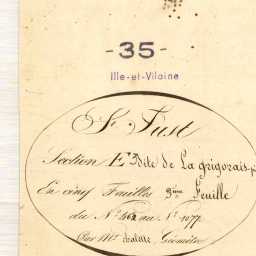 - 35 -
Ille-et-Vilaine
St. Just
Section E Dite de La grigorais
En cinq Feuilles 3ème Feuille
du N° 462 au N° 1077
Par Mr. Géomètre